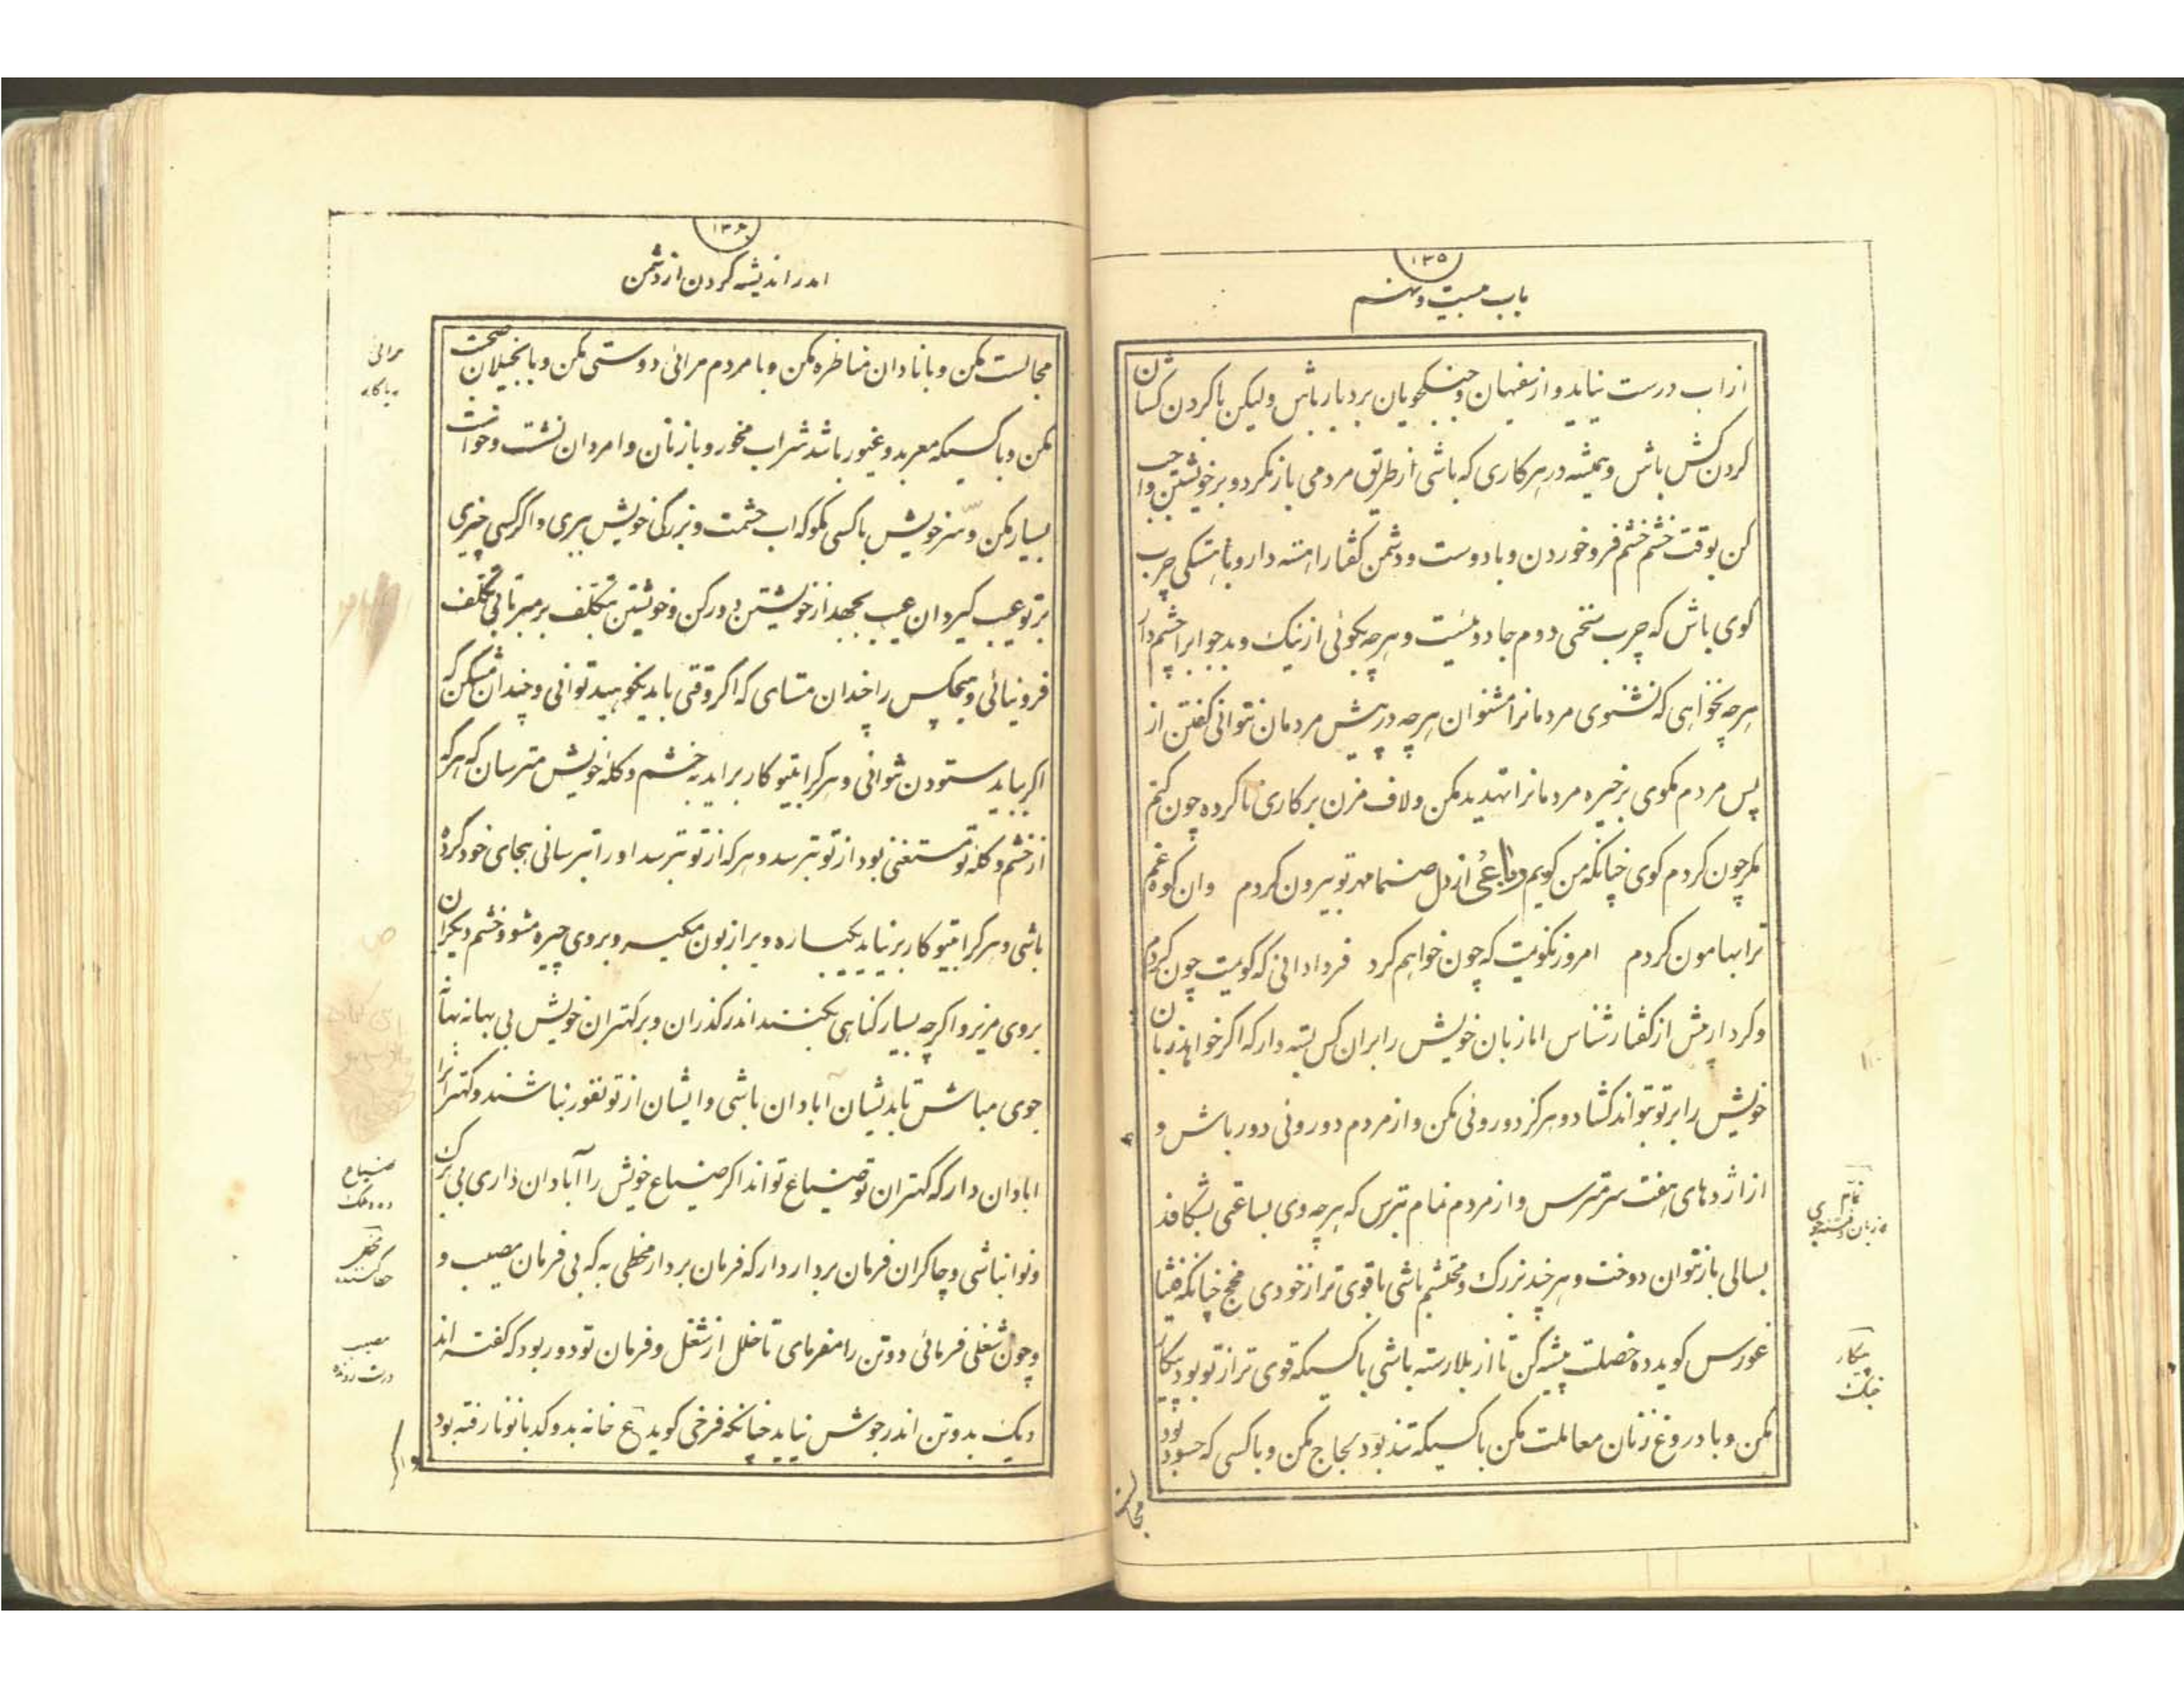 ۱۳۵
باب بیست و نهم
از اب درست نیاید و از سفیهان و جنکجویان بردبار باش ولیکن با کردن کسان
کردن کش باش و همیشه در هر کاری که باشی از طریق مردمی باز مکرد و بر خویشتن واجب
کن بوقت خشم خشم فرو خوردن و با دوست و دشمن کفتار اهسته دار و با هستکی چرب
کوی باش که چرب سخنی دوم جادوئیست و هر چه بکوئی از نیک و بد جوابرا چشم دار
هر چه نخواهی که نشنوی مردمانرا مشنوان هر چه در پیش مردمان نتوانی کفتن از
پس مردم مکوی بر خیره مردمانرا تهدید مکن و لاف مزن بر کاری نا کرده چون کنم
مکر چون کردم کوی چنانکه من کویم رباعی از دل صنما مهر تو بیرون کردم وان کوه غم
ترا بهامون کردم امروز نکویمت که چون خواهم کرد فردا دانی که کویمت چون کردم
و کردار بیش از کفتار شناس اما زبان خویش را بران کس بسته دار که اکر خواهد زبان
خویش را بر تو بتواند کشاد و هرکز دوروئی مکن و از مردم دوروئی دور باش و
از اژدهای هفت سر مترس و از مردم نمام بترس که هر چه وی بساعتی بشکافد
بسالی باز نتوان دوخت و هر چند بزرک و محتشم باشی با قوی تر از خودی مچخ چنانکه فیثا
غورس کوید ده خصلت پیشه کن تا از بلا رسته باشی با کسیکه قوی تر از تو بود پیکار
مکن و با دروغ زنان معاملت مکن با کسیکه تند بود لجاج مکن و با کسی که حسود بود
مجالست
نمام
سخن فتنه‌جوی
پیکار
جنک
۱۳۶
اندر اندیشه کردن از دشمن
مجالست مکن و با نادان مناظره مکن و با مردم مرائی دوستی مکن و با بخیلان صحبت
مکن و با کسیکه معربد و غیور باشد شراب مخور و با زنان و امردان نشست و خواست
بسیار مکن و سر خویش با کسی مکو که اب حشمت و بزرکی خویش ببری و اکر کسی چیزی
بر تو عیب کیرد ان عیب بجهد از خویشتن دور کن و خویشتن بتکلف بر مبر تا بی تکلف
فرو نیائی و هیچکس را چندان مستای که اکر وقتی باید نکوهید توانی و چندان مشکن که
اکر بباید ستودن توانی و هر کرا بیتو کار بر اید به خشم و کله خویش مترسان که هر که
از خشم و کله تو مستغنی بود از تو نترسد و هر که از تو نترسد او را بترسانی بجای خود کرده
باشی و هر کرا بیتو کار بر نیاید یکباره ویرا زبون مکیر و بر وی چیره مشو و خشم دیکران
بر وی مریز و اکر چه بسیار کناهی بکنند اندر کذران و بر کهتران خویش بی بهانه بهانه
جوی مباش تا بدیشان آبادان باشی و ایشان از تو نفور نباشند و کهترانرا
ابادان دار که کهتران تو ضیاع تواند اکر ضیاع خویش را آبادان داری بی برک
و نوا نباشی و چاکران فرمان بردار دار که فرمان بردار مخطی به که بی فرمان مصیب و
و چون شغلی فرمائی دو تن را مفرمای تا خلل از شغل و فرمان تو دور بود که کفته اند
دیک بدو تن اندر جوش نیاید چنانکه فرخی کوید ع خانه بدو کدبانو نارفته بود
مرائی
ضیاع
ده و ملک
مخطی
خطا کننده
مصیب